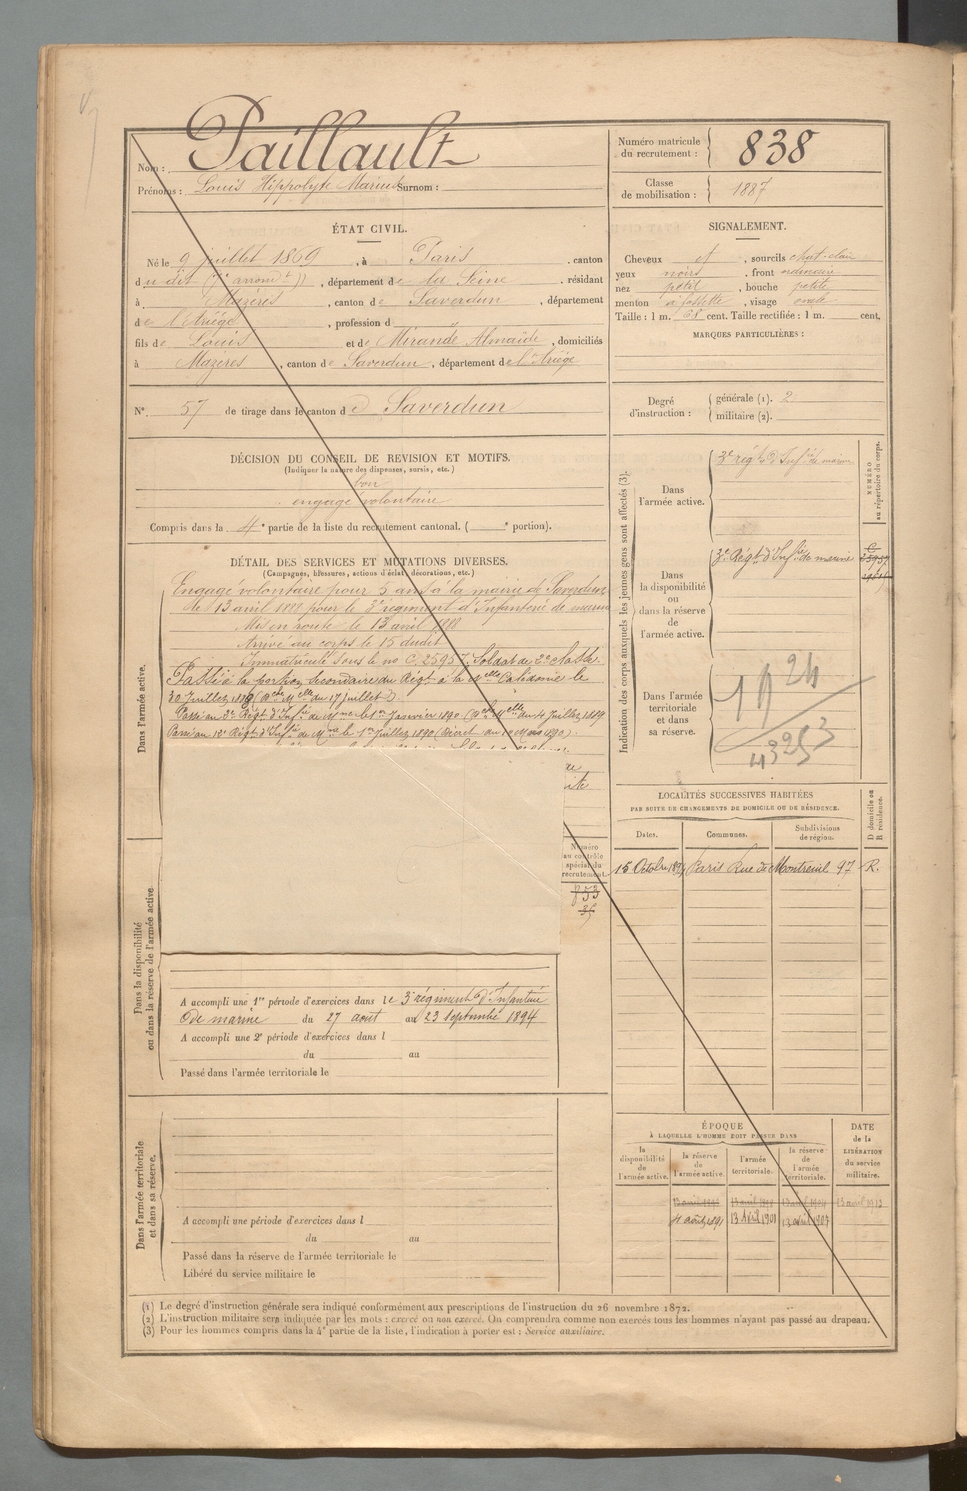 Nom : Paillault
Prénoms : Louis Hippolyte Marius Surnom :
Numéro matricule du recrutement : 838
Classe de mobilisation : 1887
ÉTAT CIVIL.
Né le 9 juillet 1869, à Paris, canton
du dit, département de la Seine, résidant
à Mazères, canton de Saverdun, département
de l'Ariège, profession d
fils de Louis et de Mirande Almaïde, domiciliés
à Mazères, canton de Saverdun, département de l'Ariège
SIGNALEMENT.
Cheveux et, sourcils chat-clair
yeux noirs, front ordinaire
nez petit, bouche petite
menton à fossette, visage ovale
Taille : 1 m. 68 cent. Taille rectifiée : 1 m. cent.
MARQUES PARTICULIÈRES :
N°. 57 de tirage dans le canton de Saverdun
Degré d'instruction : générale (1). 2
militaire (2).
DÉCISION DU CONSEIL DE REVISION ET MOTIFS.
(Indiquer la nature des dispenses, sursis, etc.)
bon
engagé volontaire
Compris dans la 4e partie de la liste du recrutement cantonal. ( e portion).
DÉTAIL DES SERVICES ET MUTATIONS DIVERSES.
(Campagnes, blessures, actions d'éclat, décorations, etc.)
Dans l'armée active.
Engagé volontaire pour 5 ans à la mairie de Saverdun
le 13 avril 1888 pour le 3e régiment d'Infanterie de marine
Mis en route le 13 avril 1888
Arrivé au corps le 15 dudit
Immatriculé sous le no C. 25957. Soldat de 2e classe.
Passé à la portion secondaire du Régt à la Nelle Calédonie le
20 Juillet 1889 (Don Melle du 17 Juillet)
Passé au Régt d'Infie de Mne le 1er Janvier 1890 (Melle du 4 Juillet 1889
Passé au 12e Régt d'Infie de Mne le 1er Juillet 1890 (Décret du Mars 1890).
Numéro au contrôle spécial du recrutement.
853
35
Dans la disponibilité ou dans la réserve de l'armée active
A accompli une 1re période d'exercices dans le 3e régiment d'Infanterie
de marine du 27 août au 23 septembre 1894
A accompli une 2e période d'exercices dans l
du au
Passé dans l'armée territoriale le
Dans l'armée territoriale et dans sa réserve.
A accompli une période d'exercices dans l
du au
Passé dans la réserve de l'armée territoriale le
Libéré du service militaire le
Indication des corps auxquels les jeunes gens sont affectés (3).
NUMÉRO au répertoire du corps.
Dans l'armée active.
3e régt d'Infie de marine
Dans la disponibilité ou dans la réserve de l'armée active.
3e Régt d'Infie de marine
C 25957
Dans l'armée territoriale et dans sa réserve.
43253
LOCALITÉS SUCCESSIVES HABITÉES
PAR SUITE DE CHANGEMENTS DE DOMICILE OU DE RÉSIDENCE.
Dates. Communes. Subdivisions de région. D domicile ou R résidence.
15 Octobre Paris Rue de Montreuil 97 R.
ÉPOQUE
À LAQUELLE L'HOMME DOIT PASSER DANS
DATE de la LIBÉRATION du service militaire.
la disponibilité de l'armée active. la réserve de l'armée active. l'armée territoriale. la réserve de l'armée territoriale.
13 avril 1913
4 août 1891 13 Avril 1901 13 avril 1907
(1) Le degré d'instruction générale sera indiqué conformément aux prescriptions de l'instruction du 26 novembre 1872.
(2) L'instruction militaire sera indiquée par les mots : exercé ou non exercé. On comprendra comme non exercés tous les hommes n'ayant pas passé au drapeau.
(3) Pour les hommes compris dans la 4e partie de la liste, l'indication à porter est : Service auxiliaire.